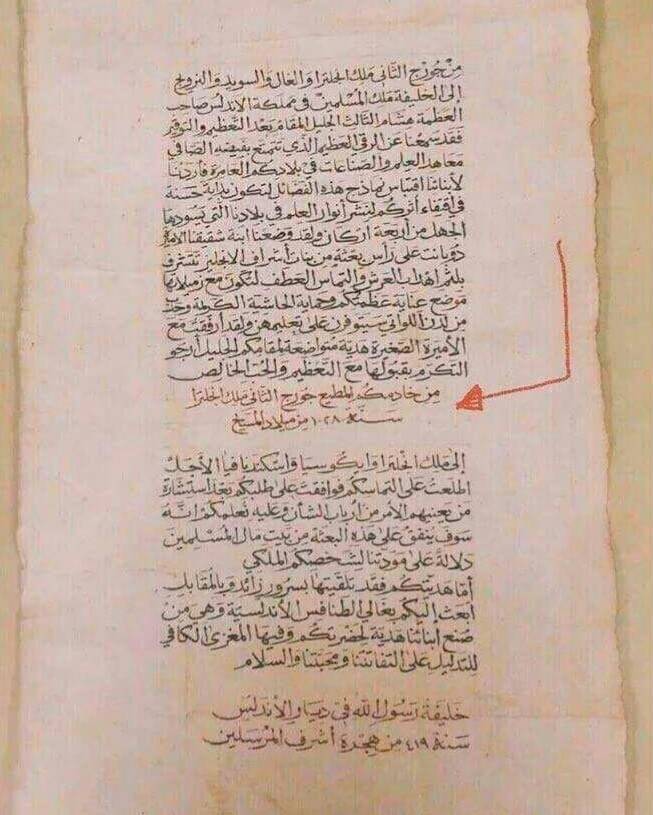 من جورج الثاني ملك انجلترا والغال والسويد والنرويج
إلى الخليفة ملك المسلمين في مملكة الاندلس صاحب
العظمة هشام الثالث الجليل المقام بعد التعظيم والتوقير
فقد سمعنا عن الرقي العظيم الذي تتمتع بفيضه الصافي
معاهد العلم والصناعات في بلادكم العامرة فأردنا
لأبنائنا اقتباس نماذج هذه الفضائل لتكون بداية حسنة
في اقتفاء أثركم لنشر أنوار العلم في بلادنا التي يسودها
الجهل من أربعة اركان ولقد وضعنا ابنة شقيقنا الأميرة
دوبانت على رأس بعثة من بنات أشراف الانجليز تتشرف
بلثم اهداب العرش والتماس العطف لتكون مع زميلاتها
موضع عناية عظمتكم وحماية الحاشية الكريمة وحدب
من لدن اللواتي سيتوفرن على تعليمهن ولقد أرفقت مع
الأميرة الصغيرة هدية متواضعة لمقامكم الجليل أرجو
التكرم بقبولها مع التعظيم والحب الخالص
من خادمكم المطيع جورج الثاني ملك انجلترا
سنة ١٠٢٨ من ميلاد المسيح
إلى ملك انجلترا وايكوسيا واسكندنافيا الأجل
اطلعت على التماسكم فوافقت على طلبكم بعد استشارة
من يعنيهم الأمر من أرباب الشأن وعليه نعلمكم انه
سوف ينفق على هذه البعثة من بيت مال المسلمين
دلالة على مودتنا لشخصكم الملكي
أما هديتكم فقد تلقيتها بسرور زائد وبالمقابل
ابعث اليكم بغالي الطنافس الأندلسية وهي من
صنع ابنائنا هدية لحضرتكم وفيها المغزى الكافي
للتدليل على التفاتتنا ومحبتنا والسلام
خليفة رسول الله في ديار الأندلس
سنة ٤١٩ من هجرة أشرف المرسلين